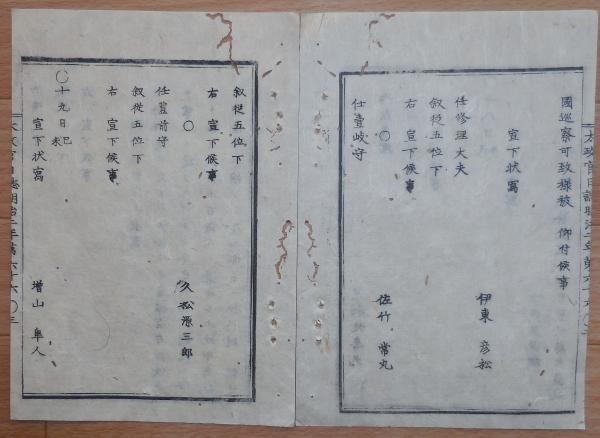 國巡察可致樣被 仰付候事
宣下状寫
伊東彦松
任修理大夫
叙従五位下
右 宣下候事
〇
佐竹常丸
任壹岐守
叙従五位下
右 宣下候事
〇
久松源三郎
任豊前守
叙従五位下
右 宣下候事
〇十九日己未
宣下状寫
増山隼人
太政官日誌明治二年第六十六〇三